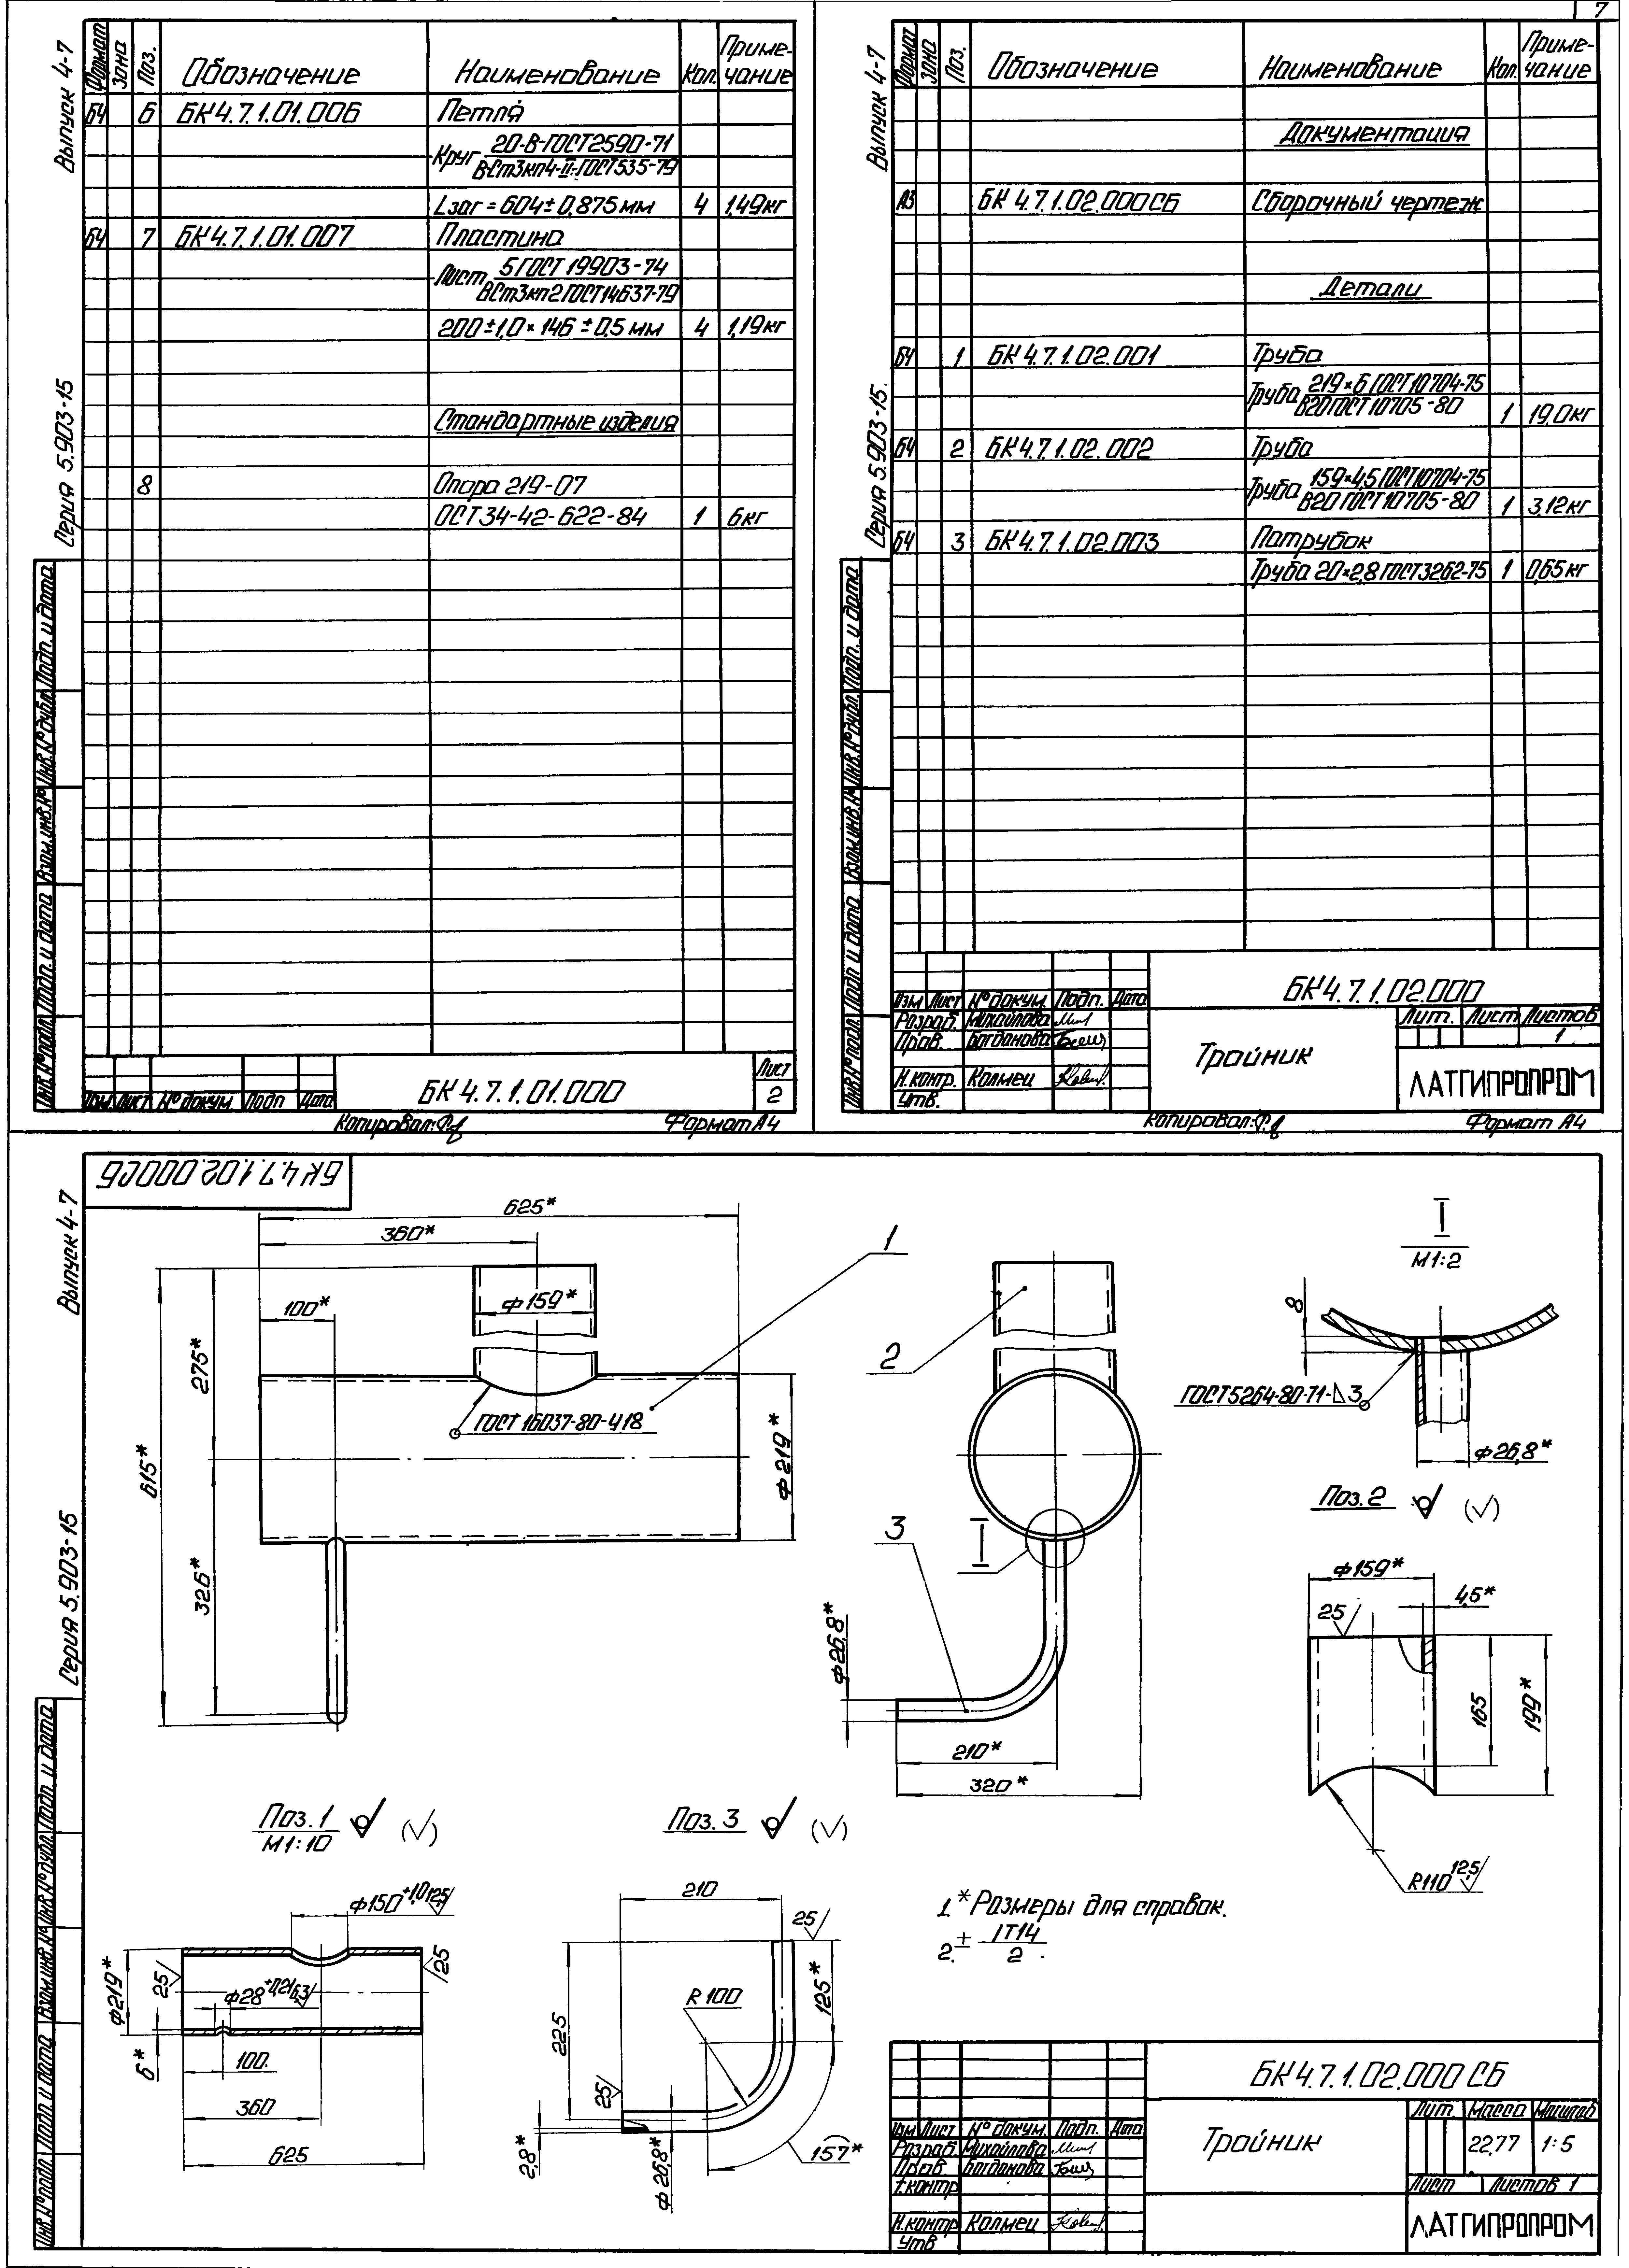 7
Выпуск 4-7
Серия 5.903-15
Формат Зона Поз. Обозначение Наименование Кол. Приме-чание
БЧ 6 БК4.7.1.01.006 Петля
Круг 20-В-ГОСТ2590-71
ВСт3кп4-II-ГОСТ535-79
Lзаг = 604 ± 0,875 мм 4 1,49кг
БЧ 7 БК4.7.1.01.007 Пластина
Лист 5 ГОСТ 19903-74
ВСт3кп2 ГОСТ14637-79
200 ± 1,0 × 146 ± 0,5 мм 4 1,19кг
Стандартные изделия
8 Опора 219-07
ОСТ 34-42-622-84 1 6кг
Инв.№подл. Подп. и дата Взам.инв.№ Инв.№дубл. Подп. и дата
Изм Лист №докум. Подп Дата
БК 4.7.1.01.000
Лист
2
Копировал:
Формат А4
Выпуск 4-7
Серия 5.903-15.
Формат Зона Поз. Обозначение Наименование Кол. Приме-чание
Документация
А3 БК 4.7.1.02.000СБ Сборочный чертеж
Детали
БЧ 1 БК 4.7.1.02.001 Труба
Труба 219×6 ГОСТ10704-75
В20 ГОСТ 10705-80 1 19,0кг
БЧ 2 БК 4.7.1.02.002 Труба
Труба 159×4,5 ГОСТ10704-75
В20 ГОСТ10705-80 1 3,12кг
БЧ 3 БК 4.7.1.02.003 Патрубок
Труба 20×2,8 ГОСТ3262-75 1 0,65кг
Инв.№подл. Подп и дата Взам.инв.№ Инв.№дубл. Подп. и дата
БК4.7.1.02.000
Изм Лист №докум. Подп. Дата
Разраб. Михайлова
Пров. Богданова
Н.контр. Колмец
Утв.
Тройник
Лит. Лист Листов
1
ЛАТГИПРОПРОМ
Копировал:
Формат А4
БК 4.7.1.02.000СБ
Выпуск 4-7
Серия 5.903-15
625*
360*
100*
ф159*
275*
615*
326*
ф219*
ГОСТ 16037-80-У18
1
2
3
I
ф26,8*
210*
320*
I
М1:2
8
ГОСТ5264-80-Т1-⊿3
ф26,8*
Поз.2 (√)
ф159*
4,5*
25
165
199*
R110 12,5
Поз.1 (√)
М1:10
ф150+1,0 12,5
ф219*
25
25
ф28+0,21 6,3
6*
100
360
625
Поз. 3 (√)
210
25
225
R100
125*
25
2,8*
ф26,8*
157*
1. *Размеры для справок.
2. ± IT14
2 .
Инв.№подл. Подп. и дата Взам.инв.№ Инв.№дубл. Подп. и дата
БК4.7.1.02.000 СБ
Изм Лист № докум. Подп. Дата
Разраб. Михайлова
Пров Богданова
Т.контр
Н.контр Колмец
Утв
Тройник
Лит. Масса Масштаб
22,77 1:5
Лист Листов 1
ЛАТГИПРОПРОМ